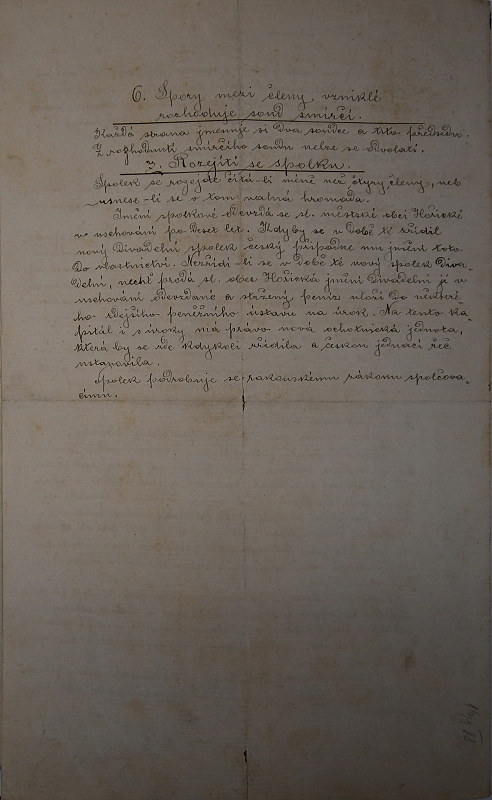 6. Spory mezi členy vzniklé
rozhoduje soud smírčí.
Každá strana jmenuje si dva soudce a tito předsedu.
Z rozhodnutí smírčího soudu nelze se odvolati.
7. Rozejití se spolku.
Spolek se rozejde čítá-li méně než čtyry členy, neb
usnese-li se o tom valná hromada.
Jmění spolkové odevzdá se sl. městské obci Hořické
v uschování po deset let. Kdyby se v době té zřídil
nový divadelní spolek český připadne mu jmění toto
do vlastnictví. Nezřídí-li se v době té nový spolek diva-
delní, nechť prodá sl. obec Hořická jmění divadelní jí v
uschování odevzdané a stržený peníz uloží do některé-
ho zdejšího peněžního ústavu na úrok. Na tento ka-
pitál i s úroky má právo nová ochotnická jednota,
která by se zde kdykoli zřídila a českou jednací řeč
ustanovila.
Spolek podrobuje se rakouskému zákonu spolčova-
címu.